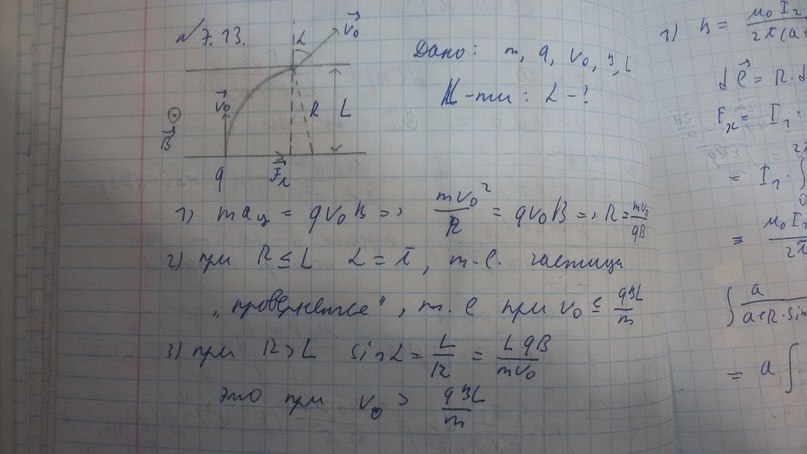 №7.13.
α
v₀
Дано: m, q, v₀, B, L
Н-ти: α-?
v₀
R
L
B
q
Fл
1) maц = qv₀B => mv₀²/R = qv₀B => R = mv₀/qB
2) при R ≤ L α = π, т.е. частица
„провернется", т.е при v₀ ≤ qBL/m
3) при R > L sin α = L/R = LqB/mv₀
это при v₀ > qBL/m
1) B = μ₀I₂/2π(a+
dℓ = R·d
Fₓ = I₁·
= I₁·∫
= μ₀I
2π
∫ a/a+R·sin
= a∫